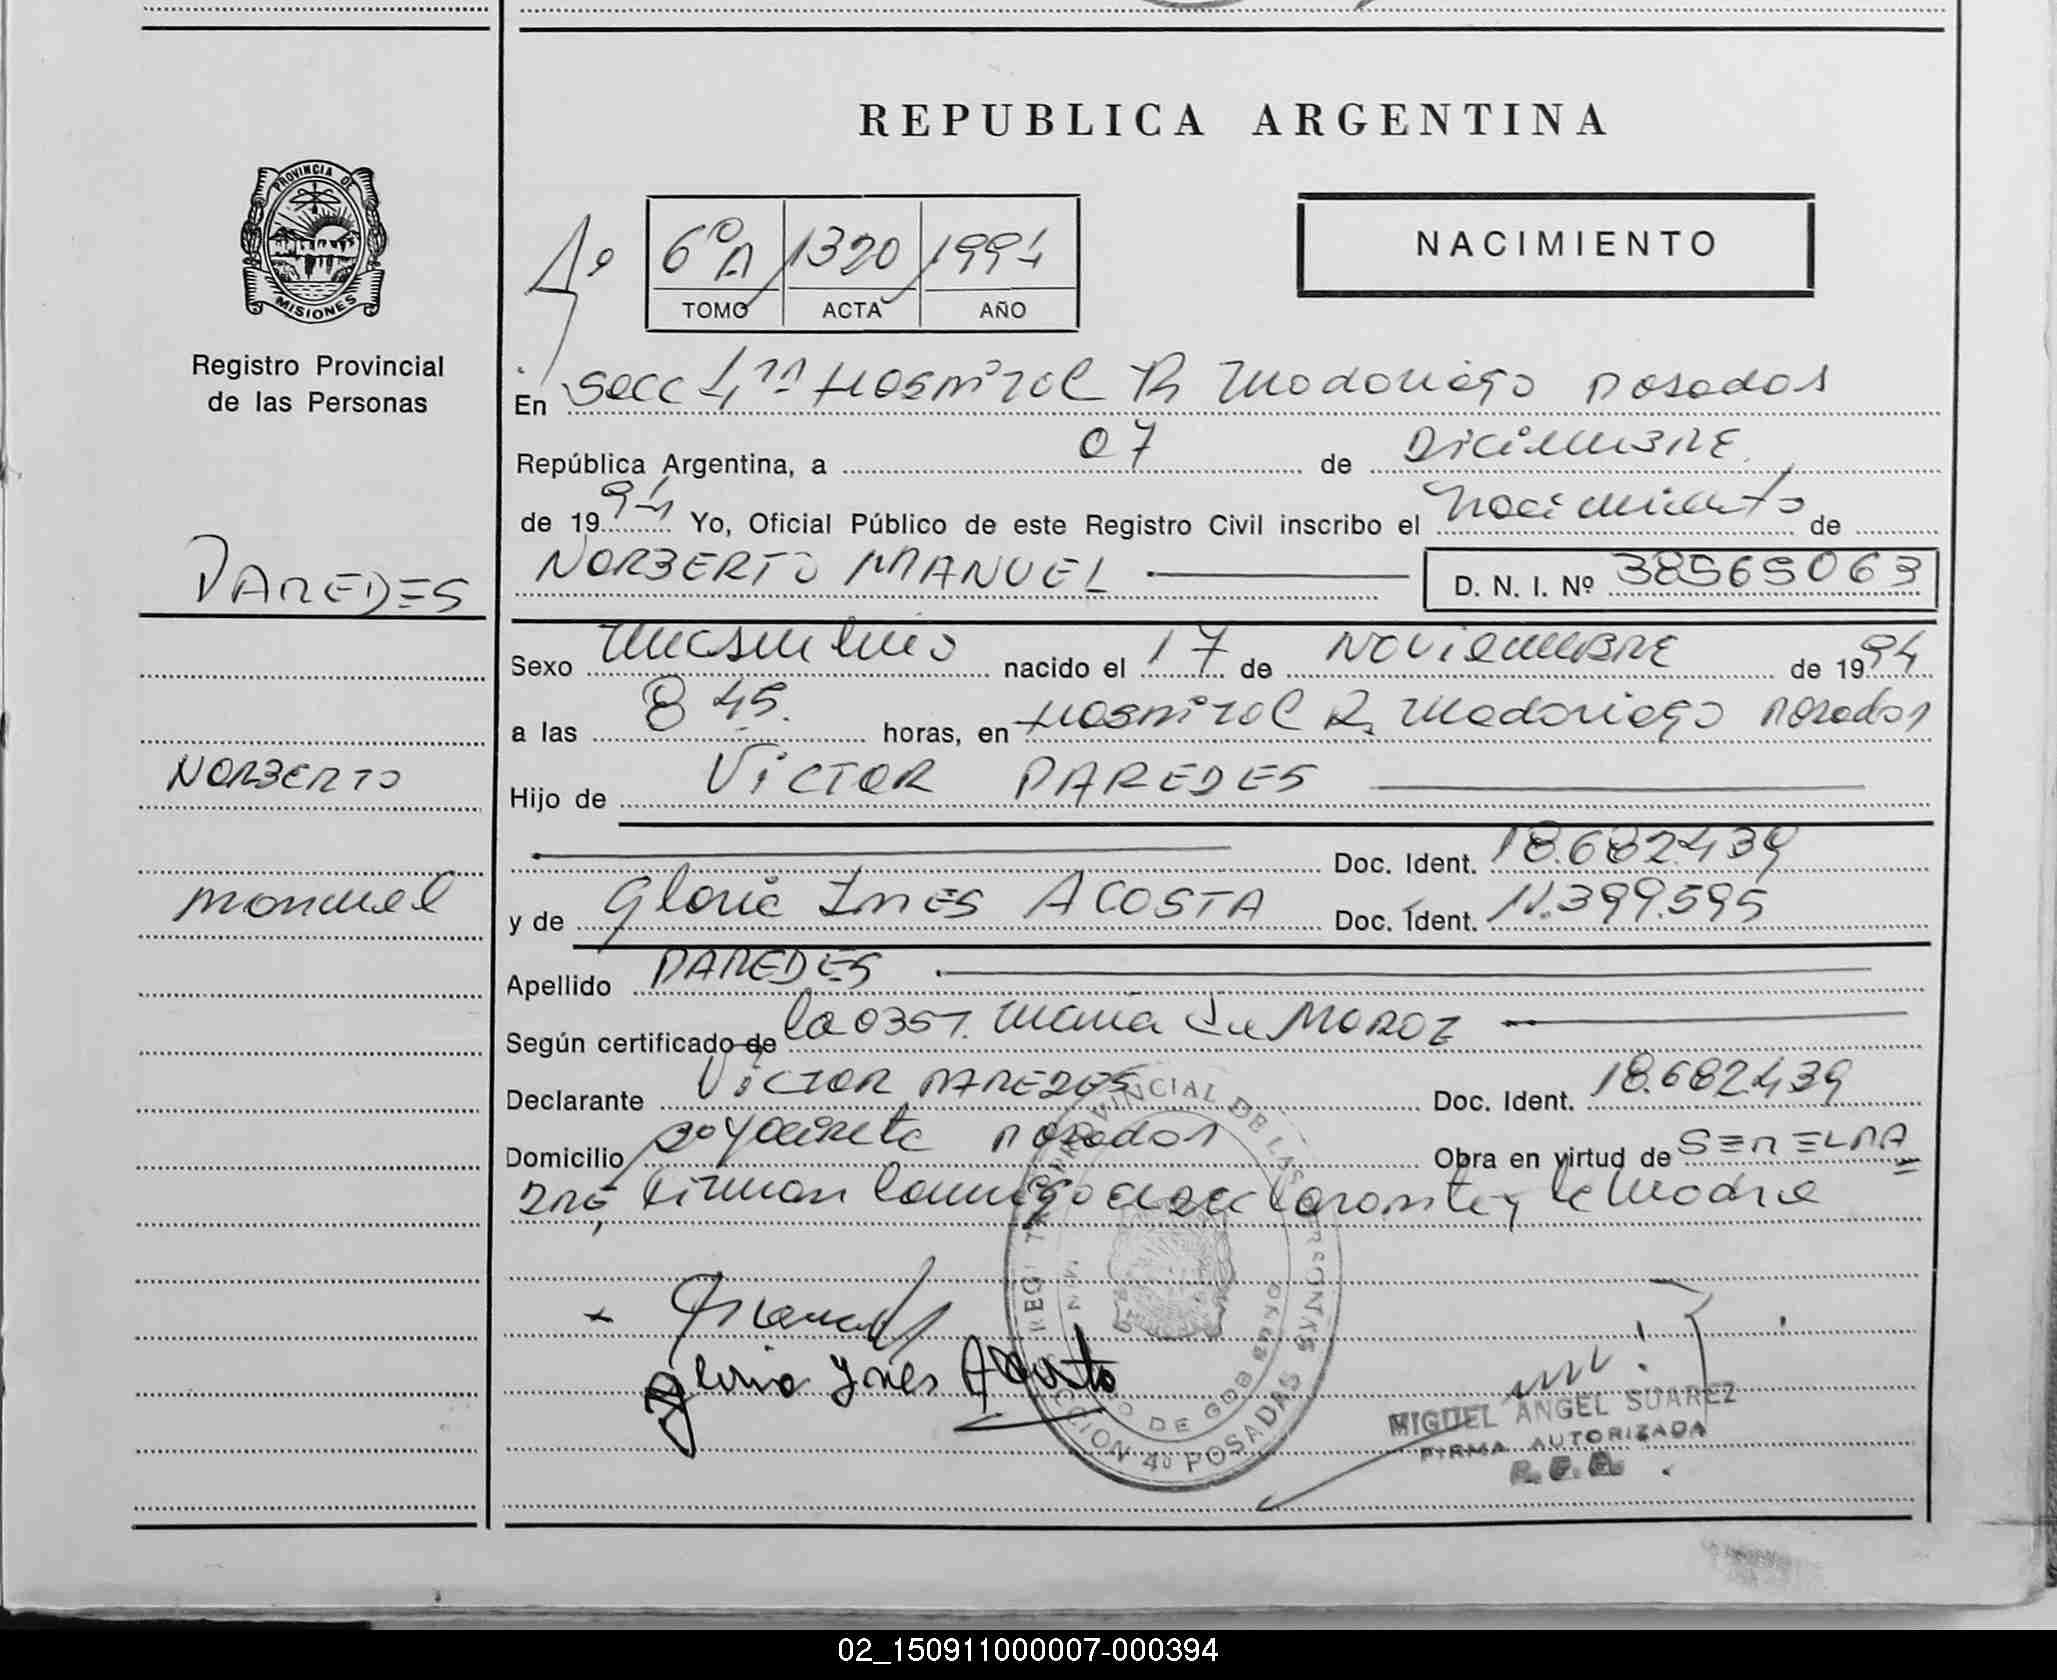 REPUBLICA ARGENTINA
PROVINCIA DE
MISIONES
Registro Provincial
de las Personas
6º A 1320 1994
TOMO ACTA AÑO
NACIMIENTO
En Secc 4ta Hospital R Madariaga Posadas
República Argentina, a 07 de Diciembre
de 1994 Yo, Oficial Público de este Registro Civil inscribo el nacimiento de
PAREDES
NORBERTO MANUEL D. N. I. Nº 38565063
Sexo masculino nacido el 17 de NOVIEMBRE de 1994
a las 8 45. horas, en Hospital R. Madariaga Posadas
NORBERTO
Hijo de VICTOR PAREDES
Doc. Ident. 18.682.439
Manuel
y de Gloria Ines ACOSTA Doc. Ident. 11.399.595
Apellido PAREDES
Según certificado de la obst. Maria de MOROZ
Declarante VICTOR PAREDES Doc. Ident. 18.682.439
Domicilio Posadas Obra en virtud de SER EL PA
DRE, Firman conmigo el declarante y la Madre
Gloria Ynes Acosta
REGISTRO PROVINCIAL DE LAS PERSONAS
SECCION 4º POSADAS
MIGUEL ANGEL SUAREZ
FIRMA AUTORIZADA
02_150911000007-000394